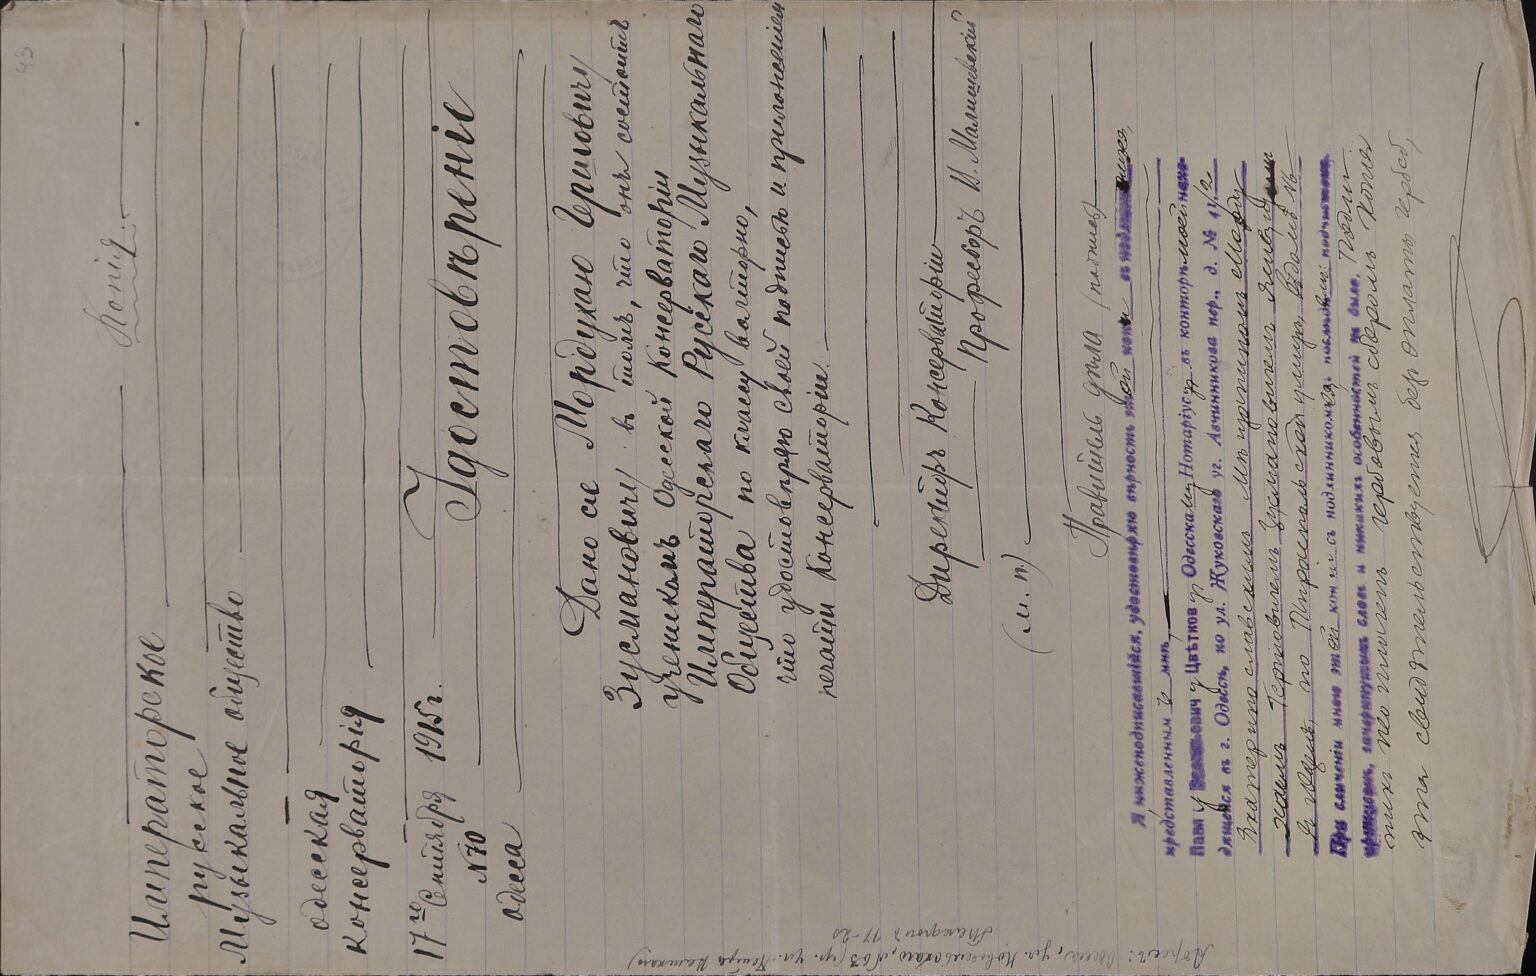 Копія.
Императорское
русское
Музыкальное общество
одесская
консерваторія
17го Сентября 1915 г.
№ 70
одесса
Удостовѣреніе
Дано сіе Мордухаю Гершовичу
Зусмановичу въ томъ, что онъ состоитъ
ученикомъ Одесской Консерваторіи
Императорскаго Русскаго Музыкальнаго
Общества по классу валторно,
что удостовѣряю своей подписью и приложеніем
печати Консерваторіи.
Директоръ Консерваторіи
Профессоръ В. Малишевскій
(м. п.)
Правитель дѣла (подпись)
Я нижеподписавшійся, удостовѣряю вѣрность этой копіи съ подлинникомъ
представленнымъ мнѣ
Цвѣтков Одесскому Нотаріусу въ конторѣ моей нахо-
дящейся въ г. Одессѣ, по ул. Жуковскаго уг. Авчинникова пер., д. № 41/2
Екатеринославскимъ мѣщаниномъ Морду
хаемъ Герш Зусмановичемъ живущимъ
въ Одессѣ, по улицѣ, въ домѣ №
При сличеніи мною этой копіи съ подлинникомъ, въ послѣднемъ подчистокъ,
приписокъ, зачеркнутыхъ словъ и никакихъ особенностей не было. Подлин
никъ гербовымъ сборомъ копія
эта свидѣтельствуется без оплаты гербов.
Адресъ: Одесса, ул.